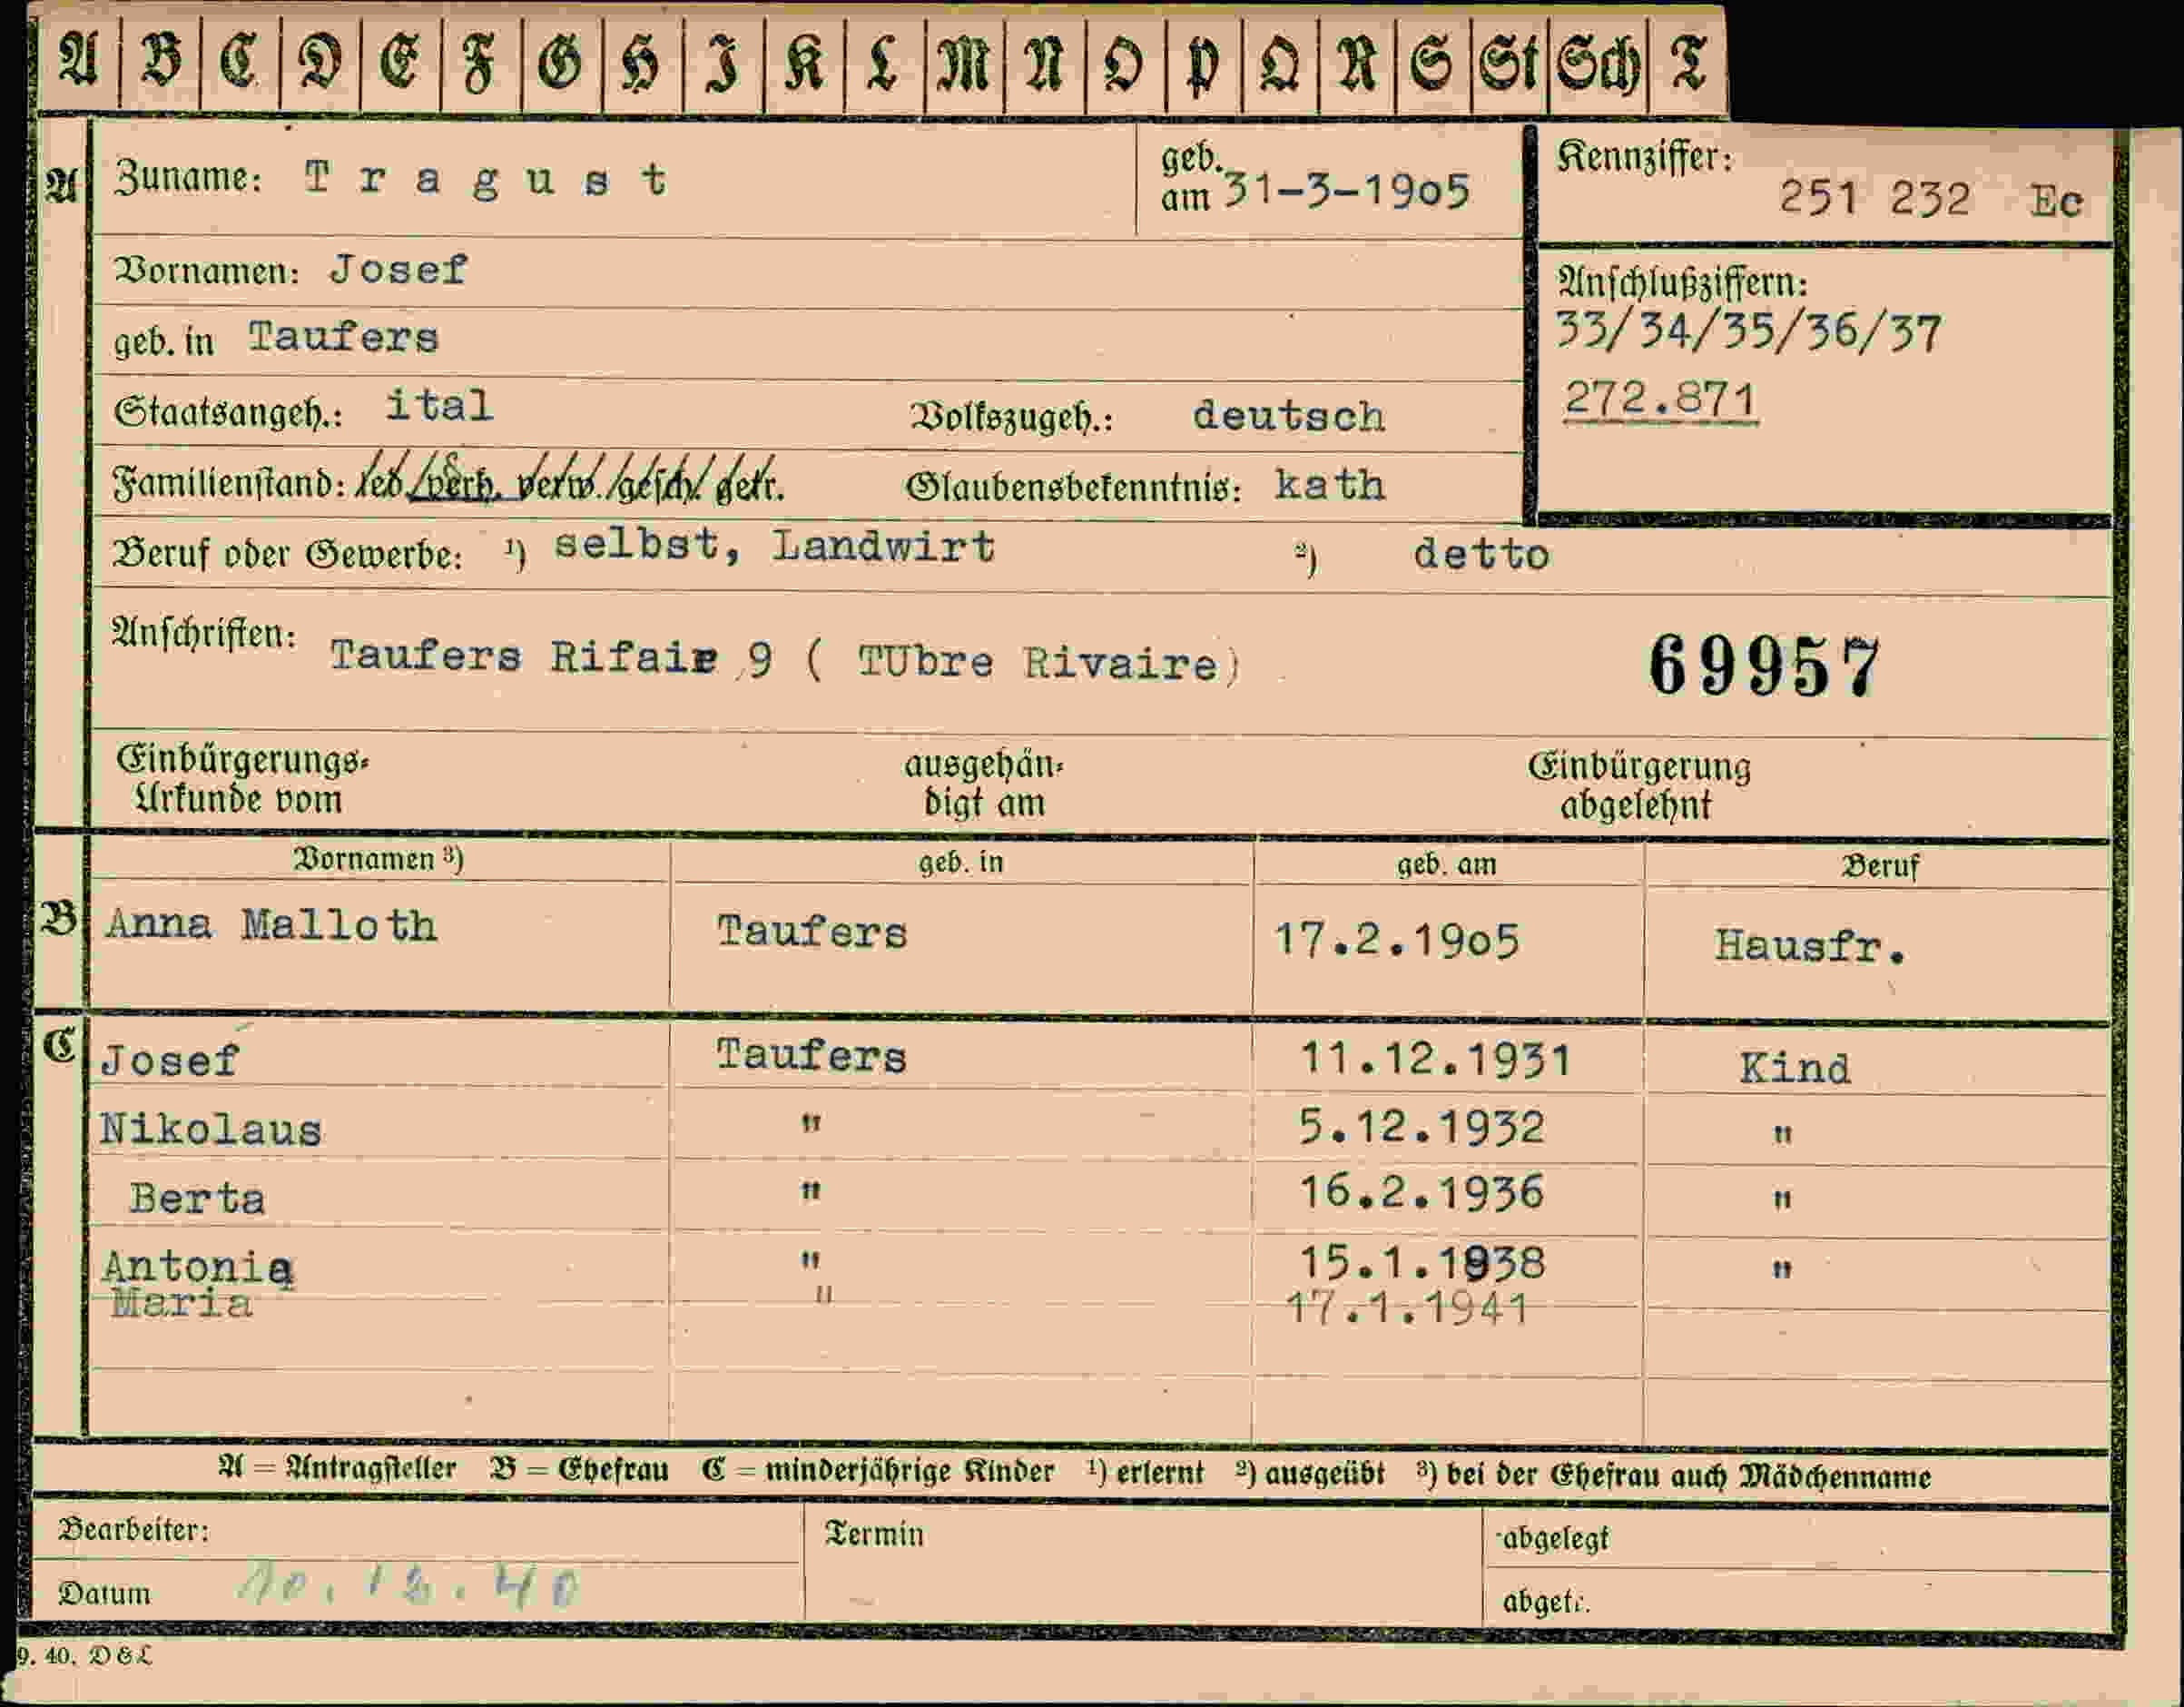 A B C D E F G H I K L M N O P Q R S St Sch T
A Zuname: Tragust geb. am 31-3-1905 Kennziffer: 251 232 Ec
Vornamen: Josef
geb. in Taufers
Anschlußziffern:
33/34/35/36/37
272.871
Staatsangeh.: ital Volkszugeh.: deutsch
Familienstand: led./verh. verw./gesch/ getr. Glaubensbekenntnis: kath
Beruf oder Gewerbe: 1) selbst, Landwirt 2) detto
Anschriften: Taufers Rifair 9 ( TUbre Rivaire) 69957
Einbürgerungs-Urkunde vom ausgehändigt am Einbürgerung abgelehnt
Vornamen 3) geb. in geb. am Beruf
B Anna Malloth Taufers 17.2.1905 Hausfr.
C Josef Taufers 11.12.1931 Kind
Nikolaus " 5.12.1932 "
Berta " 16.2.1936 "
Antonia " 15.1.1938 "
Maria " 17.1.1941
A = Antragsteller B = Ehefrau C = minderjährige Kinder 1) erlernt 2) ausgeübt 3) bei der Ehefrau auch Mädchenname
Bearbeiter: Termin abgelegt
Datum 10.12.40 abgetr.
9. 40. D & L